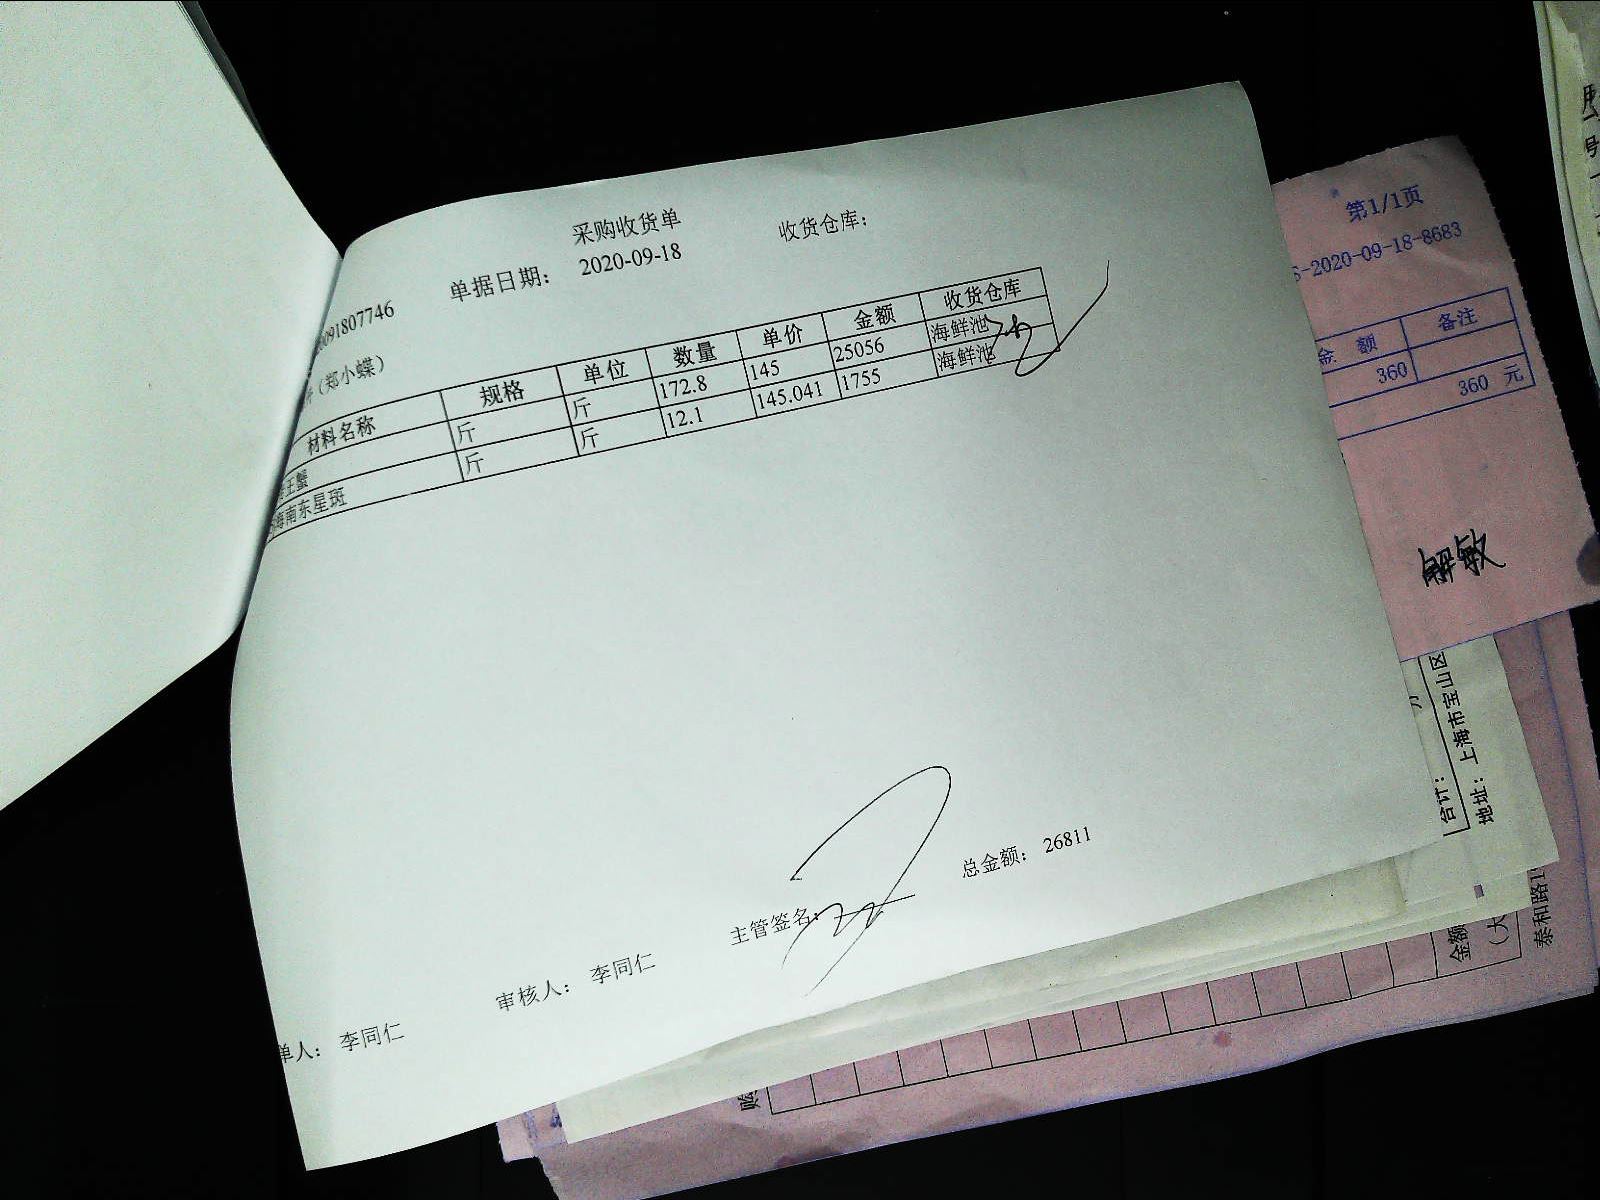 采购收货单
收货仓库:
单据日期: 2020-09-18
091807746
(郑小蝶)
材料名称 规格 单位 数量 单价 金额 收货仓库
王蟹 斤 斤 172.8 145 25056 海鲜池
海南东星斑 斤 斤 12.1 145.041 1755 海鲜池
总金额: 26811
主管签名:
审核人: 李同仁
单人: 李同仁
第1/1页
S-2020-09-18-8683
金 额 备注
360
360 元
解敏
合计:
地址: 上海市宝山区
金额
(大
泰和路1
号